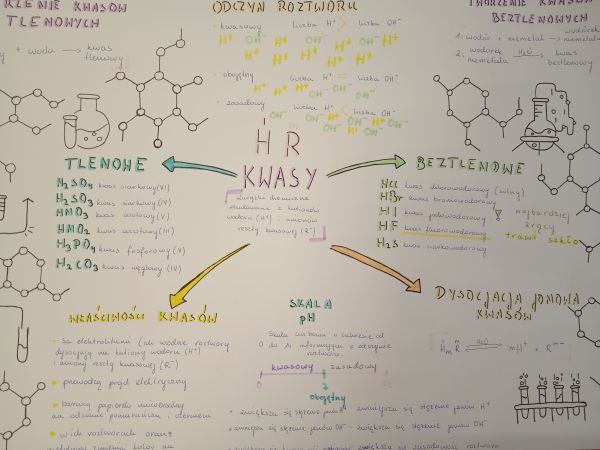 RZENIE KWASÓW
TLENOWYCH
+ woda → kwas
tlenowy
ODCZYN ROZTWORU
• kwasowy liczba H⁺ > liczba OH⁻
H⁺ OH⁻ H⁺ OH⁻ H⁺ H⁺
• obojętny liczba H⁺ = liczba OH⁻
• zasadowy liczba H⁺ < liczba OH⁻
TWORZENIE KWASÓW
BEZTLENOWYCH
1. wodór + niemetal → wodorek niemetalu
2. wodorek niemetalu H₂O → kwas beztlenowy
HR
KWASY
związki chemiczne
zbudowane z kationów
wodoru (H⁺) i anionów
reszty kwasowej (R⁻)
TLENOWE
H₂SO₄ kwas siarkowy (VI)
H₂SO₃ kwas siarkowy (IV)
HNO₃ kwas azotowy (V)
HNO₂ kwas azotowy (III)
H₃PO₄ kwas fosforowy (V)
H₂CO₃ kwas węglowy (IV)
BEZTLENOWE
HCl kwas chlorowodorowy (solny)
HBr kwas bromowodorowy
HI kwas jodowodorowy
HF kwas fluorowodorowy
H₂S kwas siarkowodorowy
najbardziej
żrący
trawi szkło
WŁAŚCIWOŚCI KWASÓW
• są elektrolitami (ich wodne roztwory
dysocjują na kationy wodoru (H⁺)
i aniony reszty kwasowej (R⁻)
• przewodzą prąd elektryczny
• barwią papierek uniwersalny
na odcienie pomarańczu i czerwieni
• w ich roztworach oranż
SKALA
pH
Skala liczbowa o zakresie od
0 do 14 informująca o odczynie
roztworu.
kwasowy zasadowy
0 7
obojętny
• zwiększa się stężenie jonów • zmniejsza się stężenie jonów H⁺
• zmniejsza się stężenie jonów OH⁻ • zwiększa się stężenie jonów OH⁻
zwiększa się zasadowość roztworu
DYSOCJACJA JONOWA
KWASÓW
HₘR H₂O → mH⁺ + Rᵐ⁻